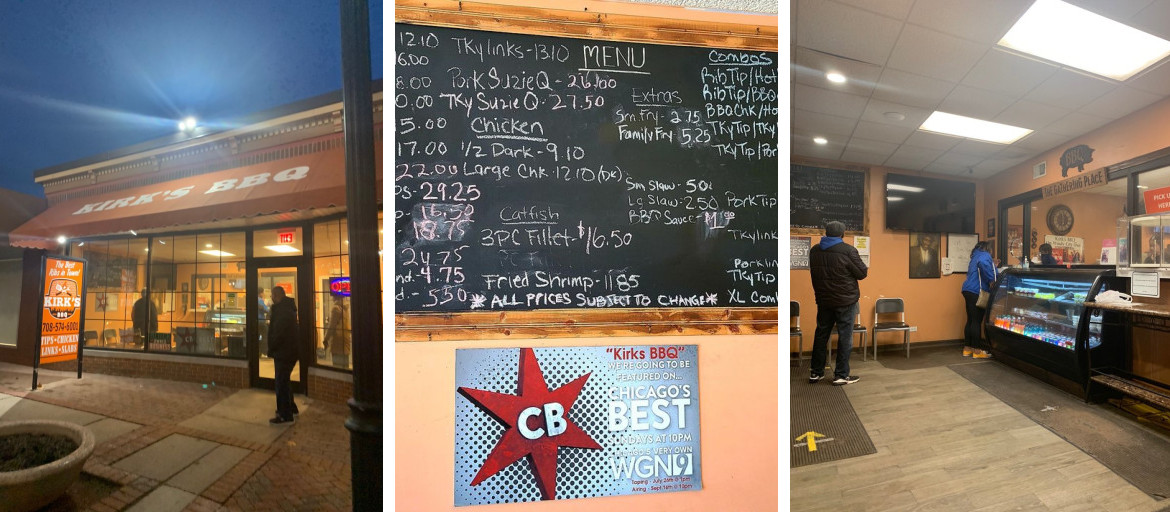 KIRK'S BBQ
The Best
Ribs in Town!
KIRK'S
BBQ
708-574-6001
TIPS · CHICKEN
LINKS · SLABS
12.10
6.00
8.00
0.00
5.00
17.00
22.00
29.25
16.50
18.75
24.75
nd. 4.75
d. - 5.50
TKy links - 13.10
MENU
Pork Suzie Q - 26.00
TKy Suzie Q - 27.50
Chicken
1/2 Dark - 9.10
Large Chk - 12.10 (DK)
Catfish
3PC Fillet - $16.50
Fried Shrimp - 11.85
* ALL PRICES SUBJECT TO CHANGE *
Extras
Sm Fry - 2.75
Family Fry - 5.25
Sm Slaw - .50¢
Lg Slaw - 2.50
BBQ Sauce -
Combos
Rib Tip/Hot
Rib Tip/BBQ
BBQ Chk/Ho
TKy Tip/TKy
TKy Tip/Por
Pork Tip
TKy link
Pork lin
TKy Tip
XL Com
CB
"Kirks BBQ"
WE'RE GOING TO BE
FEATURED ON...
CHICAGO'S
BEST
SUNDAYS AT 10PM
CHICAGO'S VERY OWN
WGN9
Taping - July 26th @ 1pm
Airing - Sept 16th @ 10pm
THE GATHERING PLACE
PICK U
HERE